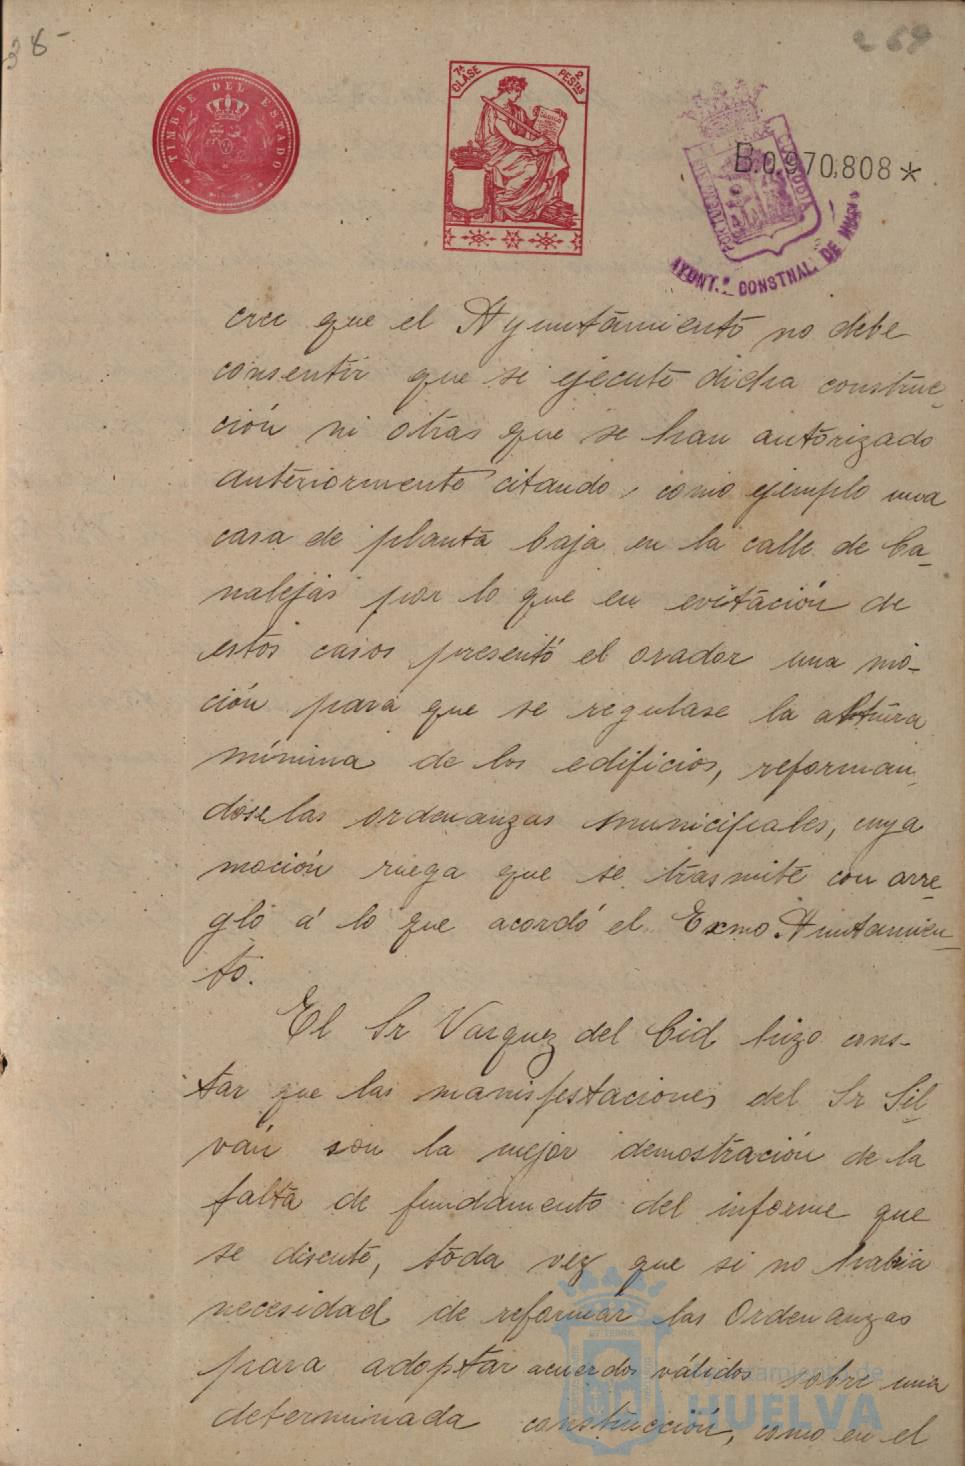 38-
269
TIMBRE DEL ESTADO
7ª CLASE
2 PESTAS
B.0,970,808*
PORTUS MARIS ET TERRÆ CUSTODIA
AYUNT.º CONSTNAL. DE HUELVA
cree que el Ayuntamiento no debe
consentir que se ejecute dicha construc-
ción ni otras que se han autorizado
anteriormente citando, como ejemplo una
casa de planta baja en la calle de Ca-
nalejas por lo que en evitación de
estos casos presentó el orador una mo-
ción para que se regulase la altura
mínima de los edificios, reforman-
dose las ordenanzas municipales, cuya
moción ruega que se trasmite con arre-
glo á lo que acordó el Exmo Auntamien-
to.
El Sr Vazquez del Cid hizo cons-
tar que las manisfestaciones del Sr Sil-
ván son la mejor demostración de la
falta de fundamento del informe que
se discute, toda vez que si no habia
necesidad de reformar las Ordenanzas
para adoptar acuerdos válidos sobre una
determinada construcción, como en el
Ayuntamiento de
HUELVA